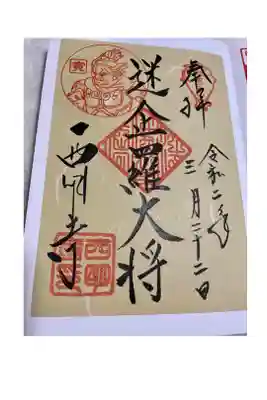 奉拝
令和二年
三月二十二日
迷企羅大将
西明寺
寅
西明